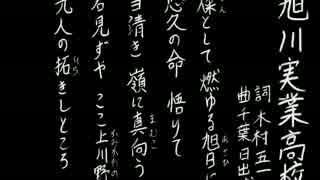 旭川実業高校
詞 木村五一
曲 千葉日出
燦として燃ゆる旭日に
悠久の命 悟りて
雪清き嶺に真向う
君見ずや ここ上川野
先人の拓きしところ